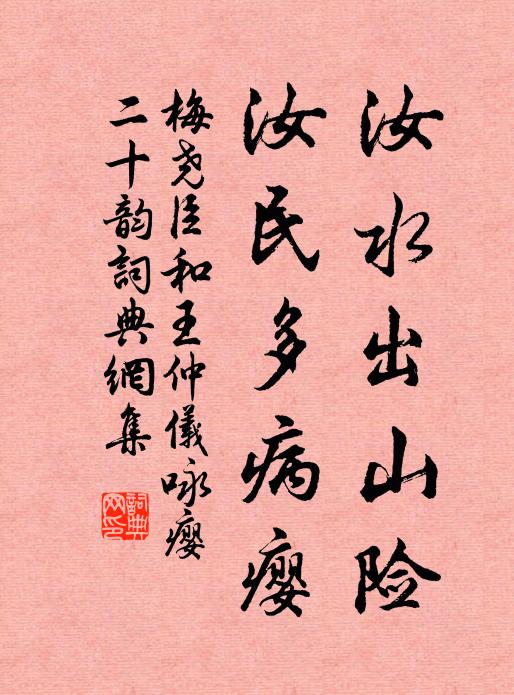 汝水出山险
汝民多病瘿
梅尧臣和王仲儀咏瘿
二十韵詞典網集
詞典
网印